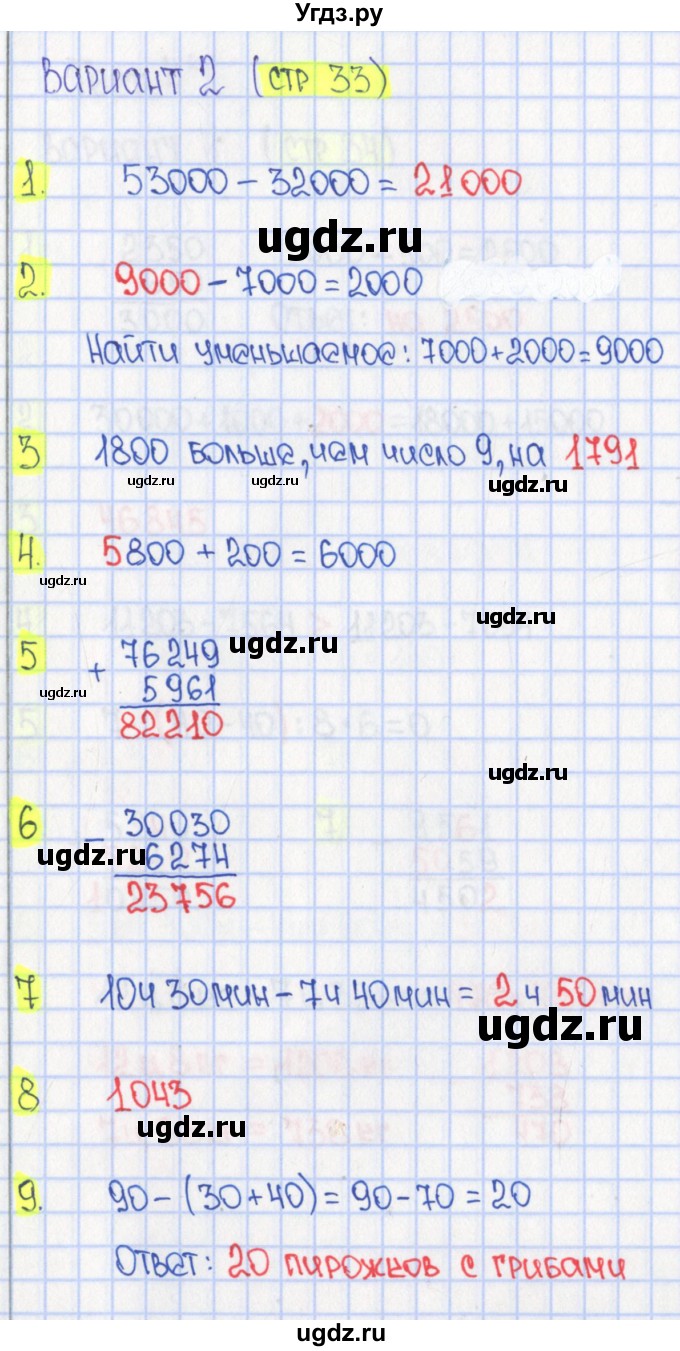 Угдз.ру
Вариант 2 (стр 33)
1. 53000 - 32000 = 21000
ugdz.ru
2. 9000 - 7000 = 2000
Найти уменьшаемое: 7000 + 2000 = 9000
3 1800 больше, чем число 9, на 1791
ugdz.ru ugdz.ru ugdz.ru
4. 5800 + 200 = 6000
ugdz.ru
ugdz.ru
5 + 76249
5961
82210
ugdz.ru
ugdz.ru
6 - 30030
6274
23756
ugdz.ru
7 10ч 30мин - 7ч 40мин = 2ч 50мин
ugdz.ru
8 1043
ugdz.ru
9. 90 - (30 + 40) = 90 - 70 = 20
Ответ: 20 пирожков с грибами
ugdz.ru